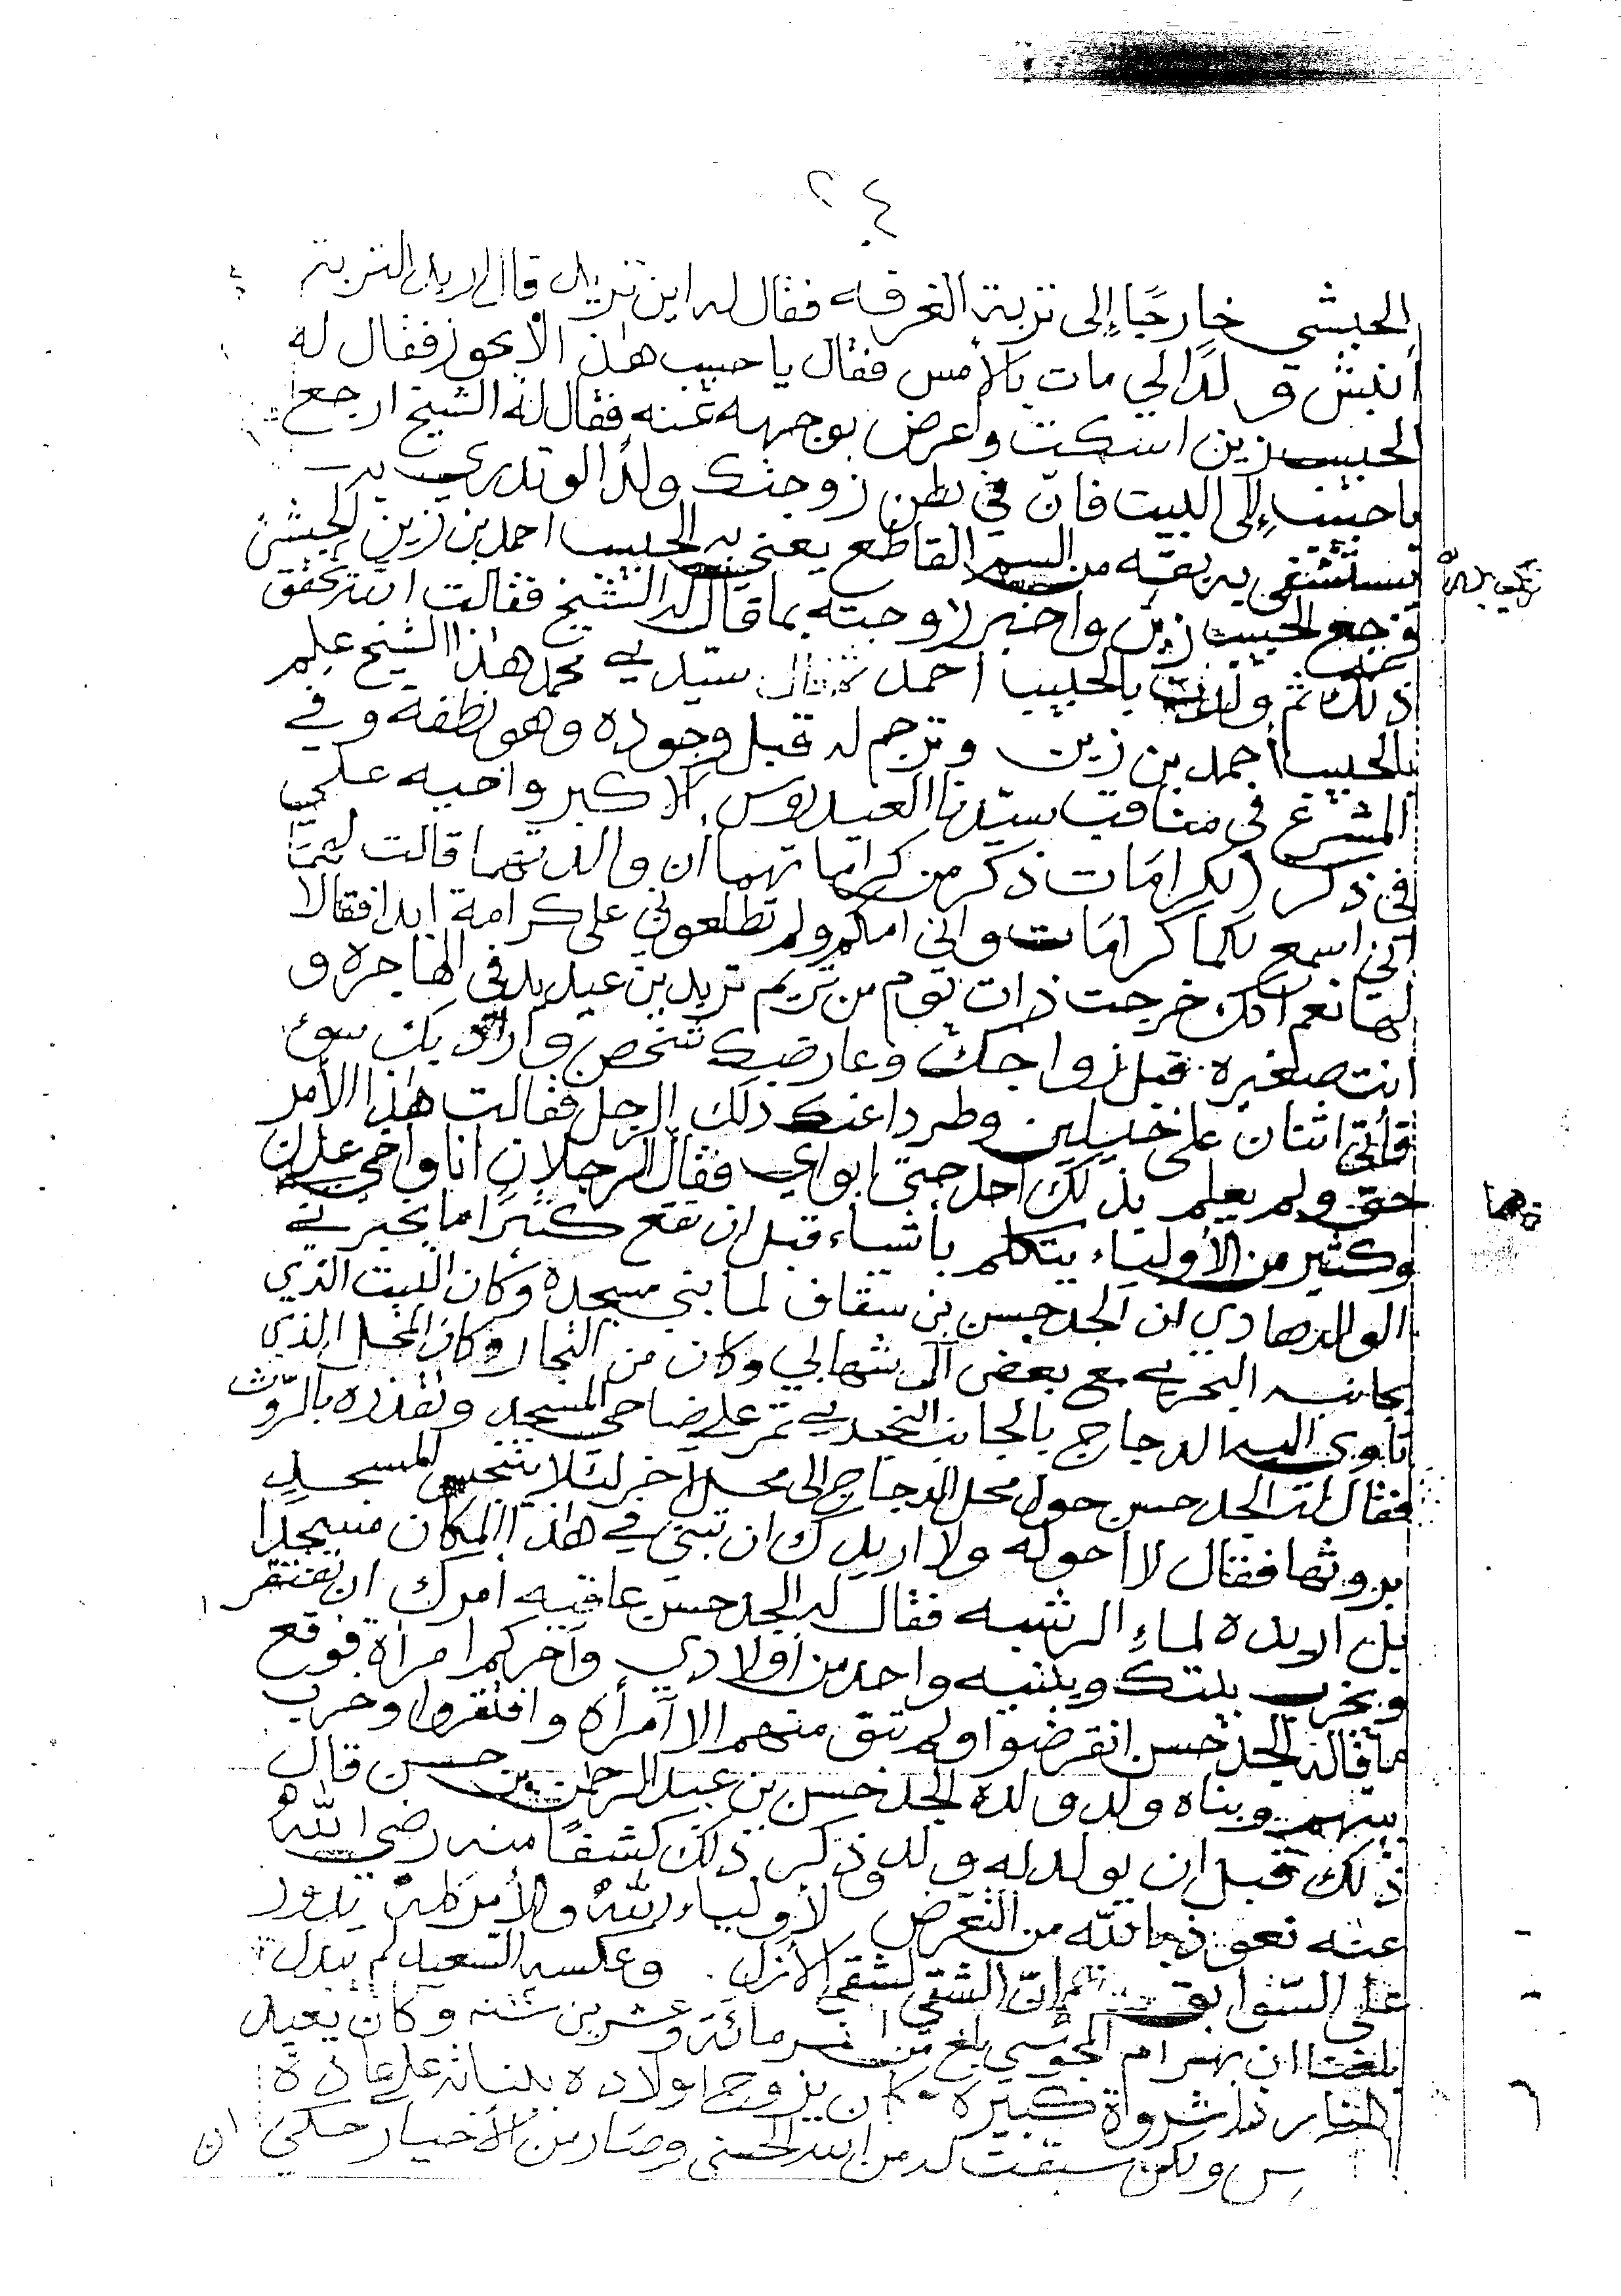 ٢٤
الحبشي خارجًا إلى تربة الغرفه فقال له اين تريد قال اريد التربة
انبش ولدًا لي مات بالأمس فقال يا حبيب هذا لا يجوز فقال له
الحبيب زين اسكت واعرض بوجهه عنه فقال له الشيخ ارجع
يا حبيب إلى البيت فانّ في بطن زوجتك ولدًا لو تدري به
تستشفي بريقه من السم القاطع يعني به الحبيب احمد بن زين الحبشي
فرجع الحبيب زين واخبر زوجته بما قال له الشيخ فقالت انه تحقق
ذلك ثم ولدت بالحبيب احمد قال سيدي محمد هذا الشيخ علم
بالحبيب أحمد بن زين وترجم له قبل وجوده وهو نطفة وفي
المشرع في مناقب سيدنا العيدروس الاكبر واخيه علي
في ذكر الكرامات ذكر من كراماتهما أن والدتهما قالت لهما
اني اسمع لكما كرامات واني امكم ولم تطلعوني على كرامة ابدا فقالا
لها نعم انك خرجت ذات يوم من تريم تريدين عيديد في الهاجرة و
انت صغيره قبل زواجك وعارضك شخص وارادك بسوء
فأتى اثنان على خيلين وطردا عنك ذلك الرجل فقالت هذا الأمر
حق ولم يعلم بذلك احد حتى ابواي فقال الرجلان انا واخي علي
وكثير من الأولياء يتكلم بأشياء قبل ان تقع كثيرًا ما يخبرني
الوالد هادي ان الجد حسن بن سقاف لما بنى مسجده وكان البيت الذي
بجانبه البحري مع بعض آل شهابي وكان من التجار وكان المحل الذي
تأوي اليه الدجاج بالجانب النجدي تمر على ضاحي المسجد وتقذره بالرّوث
فقال له الجد حسن حول محل الدجاج إلى محل آخر لئلا يتنجس المسجد
بروثها فقال لا احوله ولا اريدك ان تبني في هذا المكان مسجدا
بل اريده لماء الرشبه فقال له الجد حسن عاقبه امرك ان تفتقر
ويخرب بيتك ويبنيه واحد من أولادي وآخركم امرأة فوقع
ما قاله الجد حسن انقرضوا ولم تبق منهم الا امرأة وافتقروا وخرب
بيتهم وبناه ولد ولده الجد حسن بن عبد الرحمن بن حسن قال
ذلك قبل ان يولد له ولد وذكر ذلك كشفًا منه رضي الله
عنه نعوذ بالله من التعرض لأولياء الله والأمر كله يدور
على السوابق ثم انّ الشقي لشقي الأزل وعكسه السعيد لم يبدل
بلغنا ان بهرام المجوسي بلغ من العمر مائة وعشرين سنه وكان يعبد
النار ذا ثروة كبيرة كان يزوج اولاده ببناته على عادة
س ولكن سبقت له من الله الحسنى وصار من الأخيار حكي ان
تهما